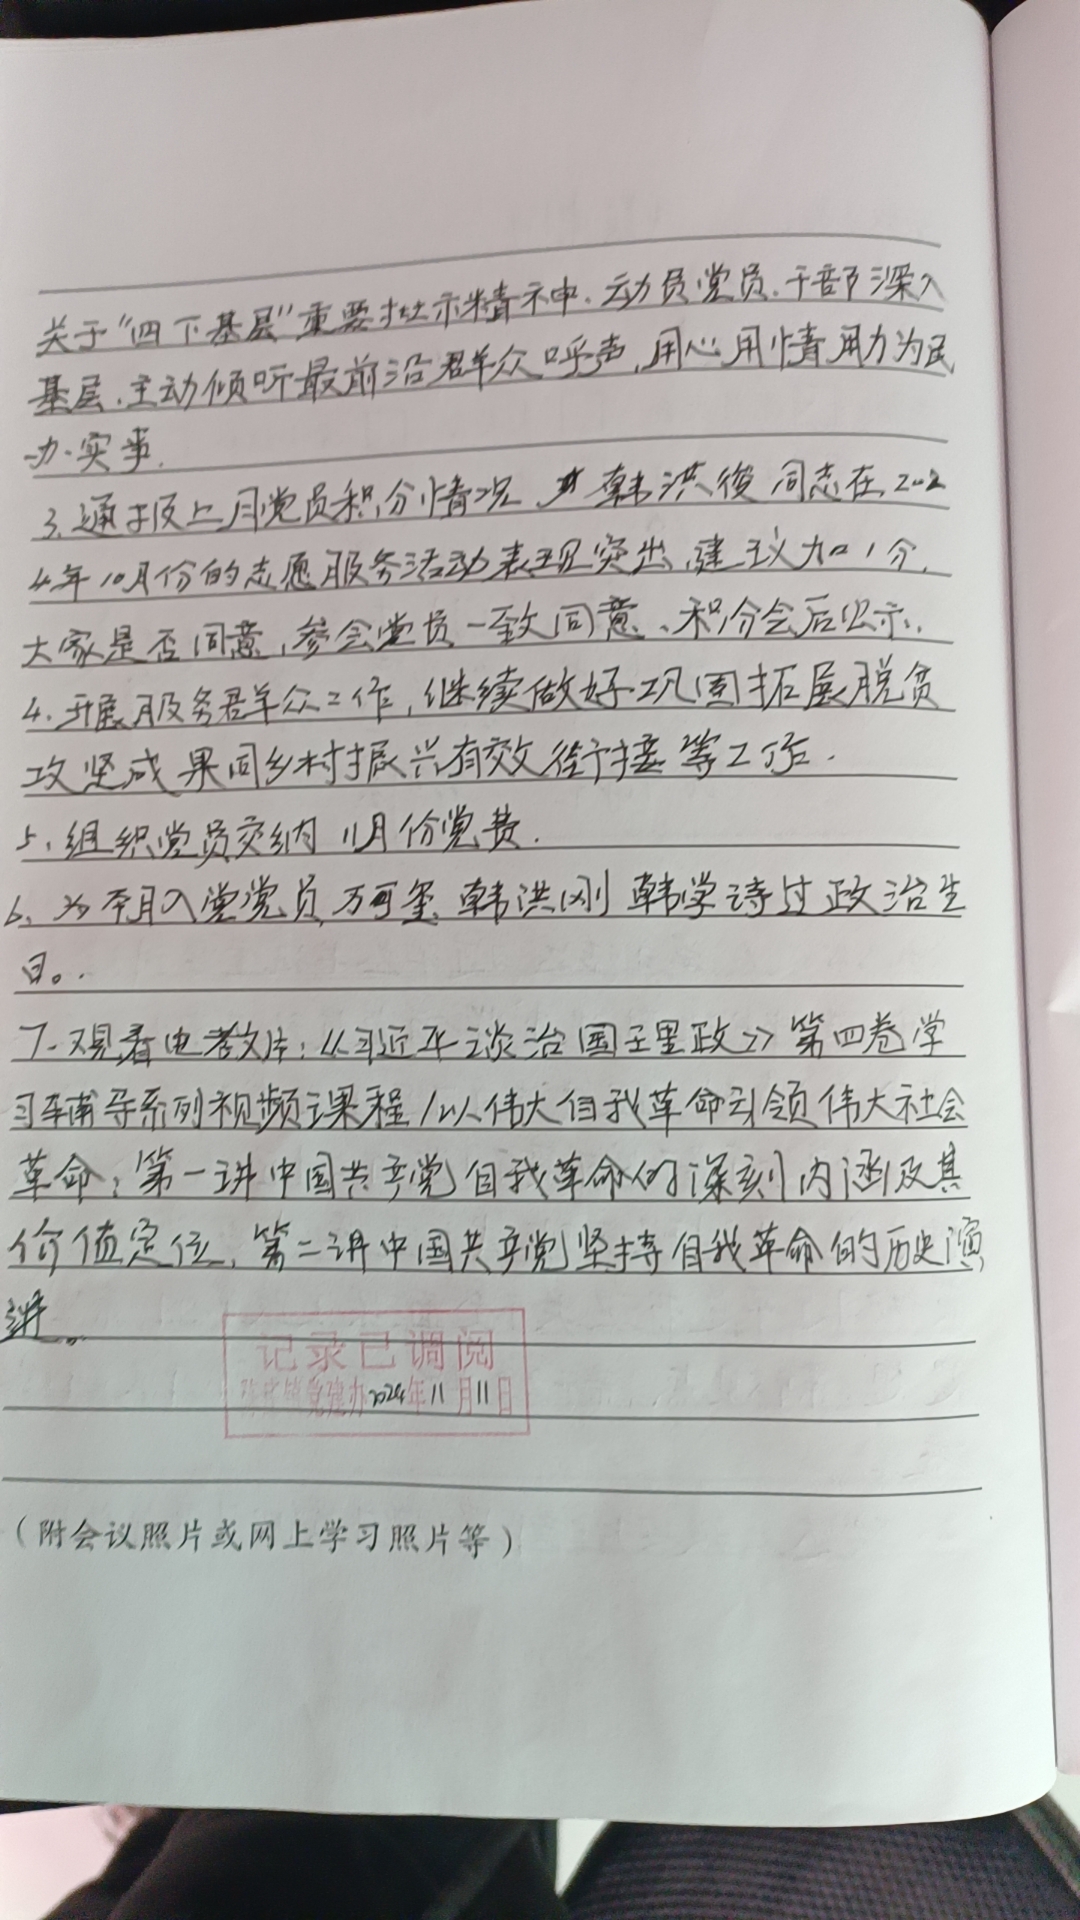 关于“四下基层”重要批示精神.动员党员.干部深入
基层.主动倾听最前沿群众呼声,用心用情用力为民
办实事.
3.通报上月党员积分情况 韩洪俊同志在202
4年10月份的志愿服务活动表现突出,建议加1分.
大家是否同意,参会党员一致同意、积分会后公示.
4.开展服务群众工作,继续做好巩固拓展脱贫
攻坚成果同乡村振兴有效衔接等工作.
5.组织党员交纳11月份党费.
6、为本月入党党员万可玺 韩洪刚 韩学诗过政治生
日。.
7.观看电教片:《习近平谈治国理政》第四卷学
习辅导系列视频课程/以伟大自我革命引领伟大社会
革命:第一讲中国共产党自我革命的深刻内涵及其
价值定位.第二讲中国共产党坚持自我革命的历史演
进。
记录已调阅
镇党建办2024年11月11日
(附会议照片或网上学习照片等)